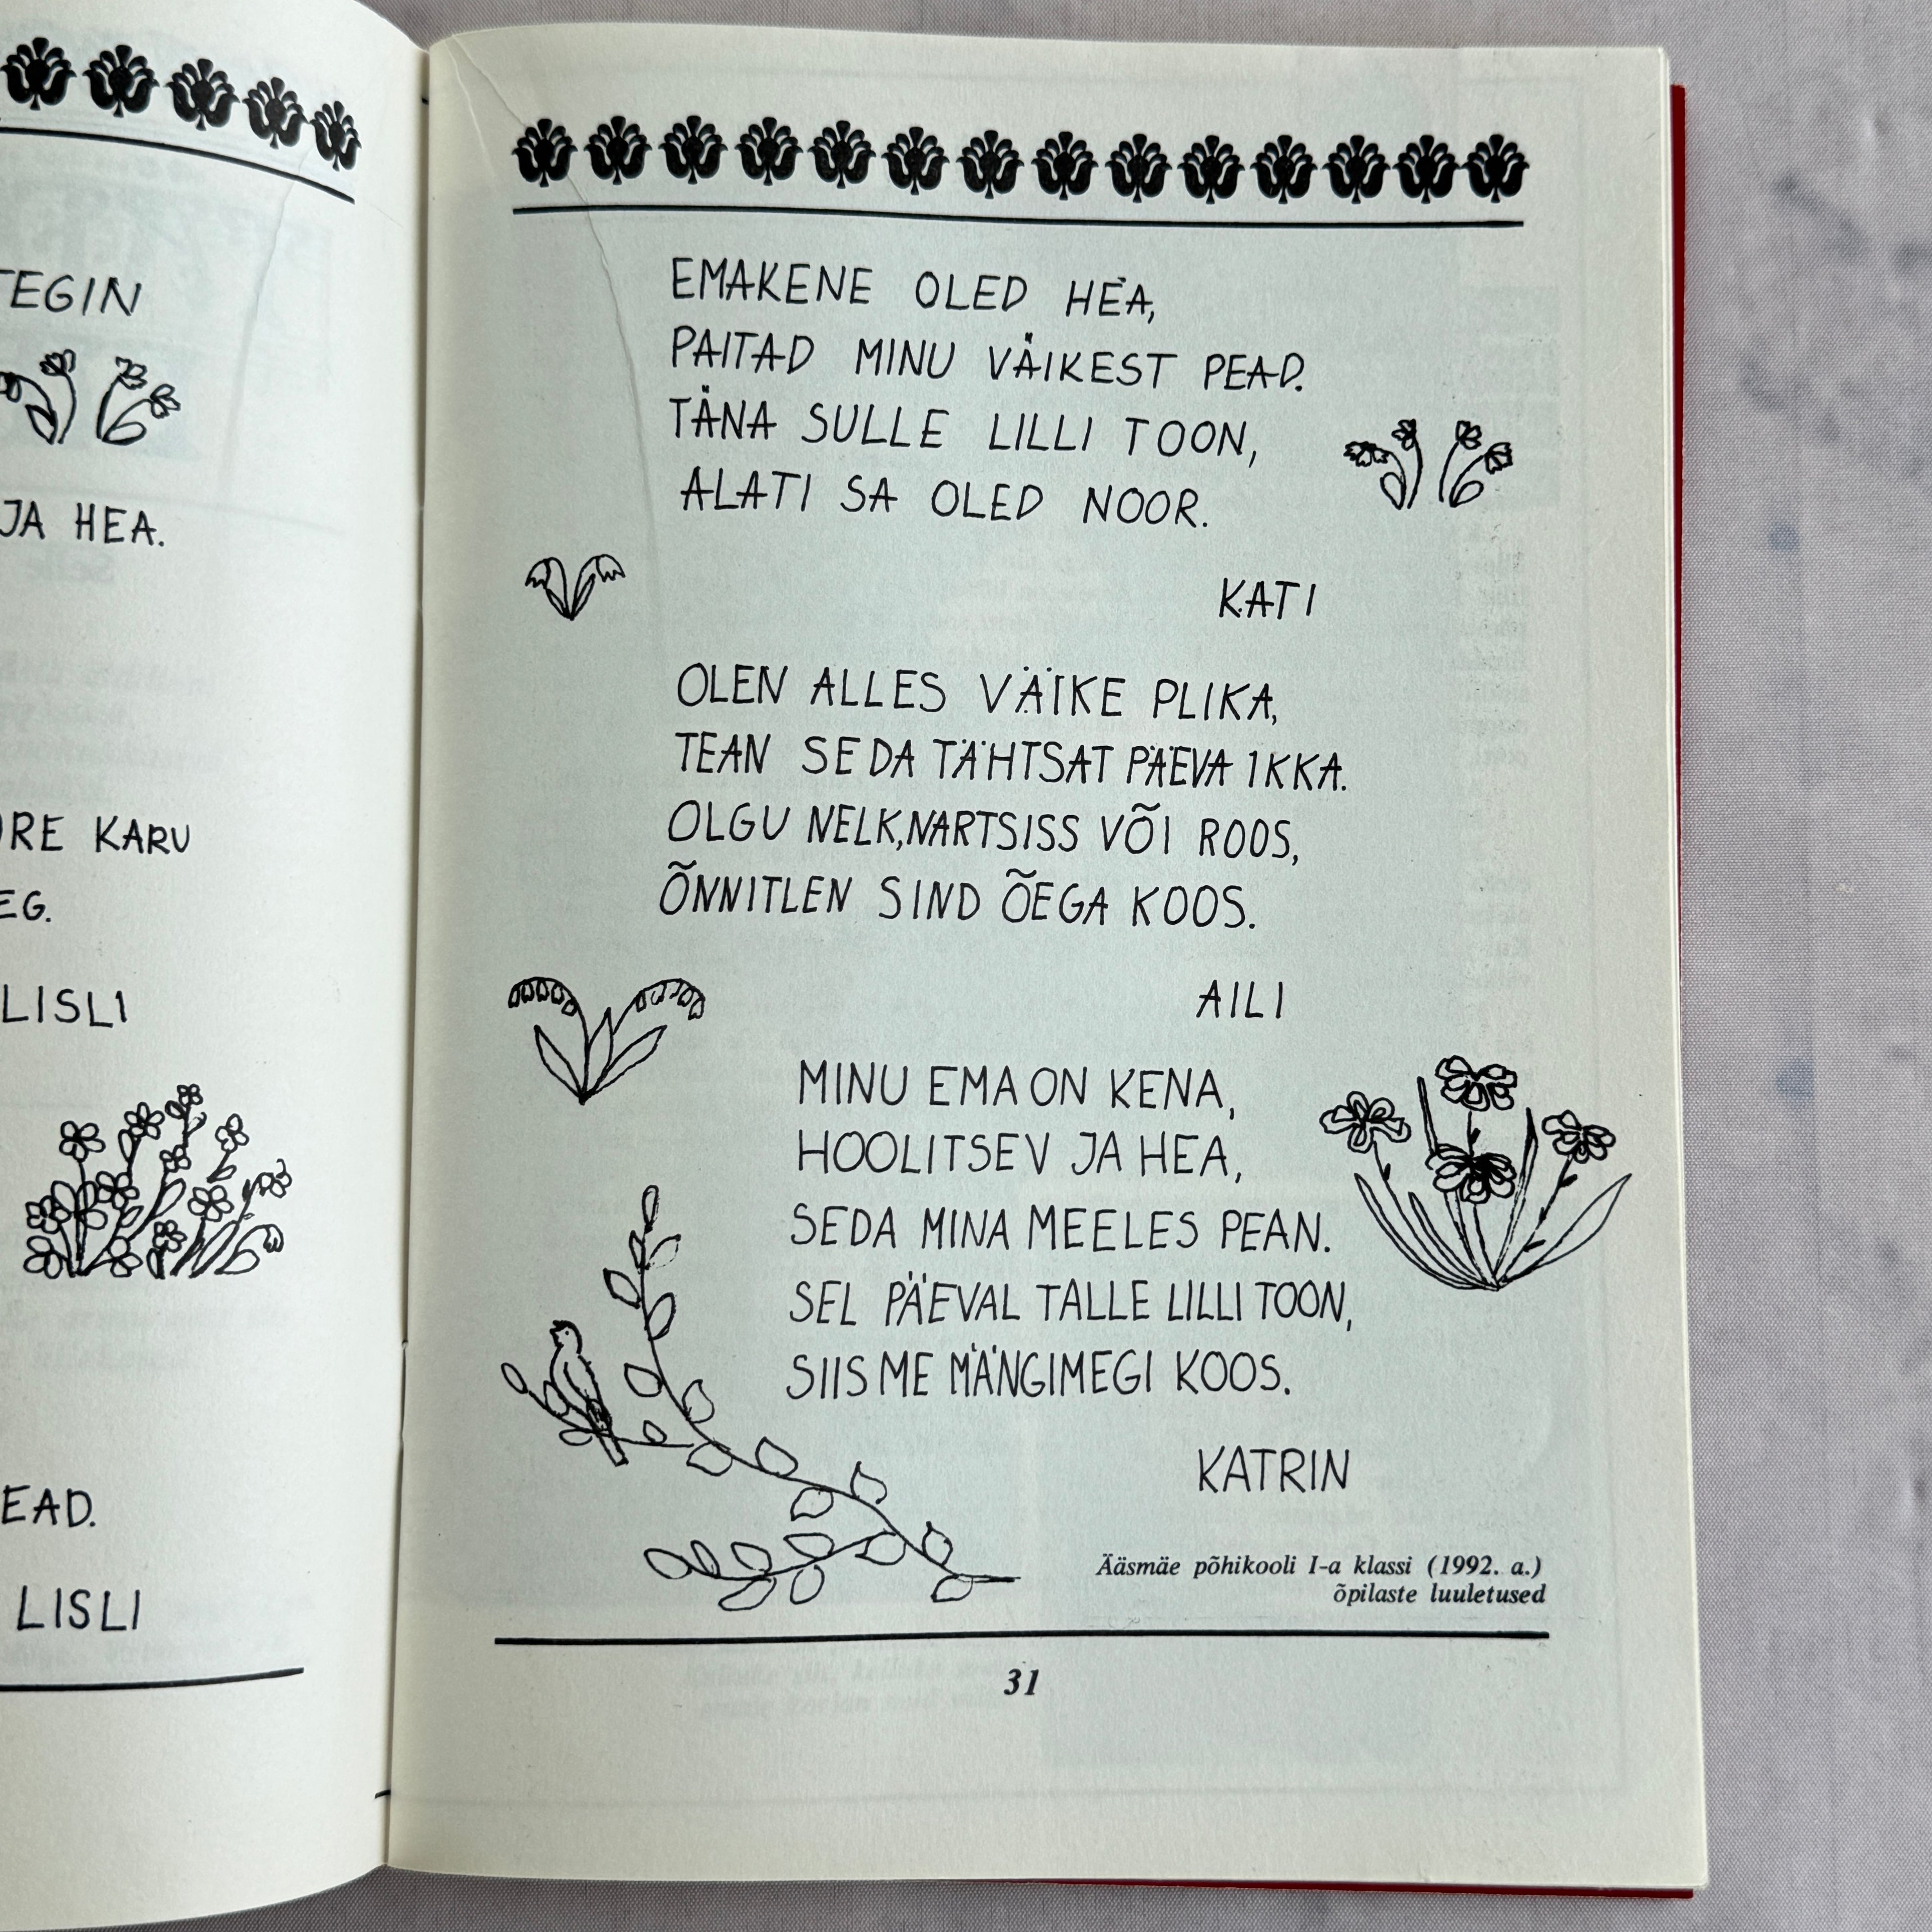 TEGIN
JA HEA.
KARU
LISLI
LISLI
EMAKENE OLED HEA,
PAITAD MINU VÄIKEST PEAD.
TÄNA SULLE LILLI TOON,
ALATI SA OLED NOOR.
KATI
OLEN ALLES VÄIKE PLIKA,
TEAN SEDA TÄHTSAT PÄEVA IKKA.
OLGU NELK,NARTSISS VÕI ROOS,
ÕNNITLEN SIND ÕEGA KOOS.
AILI
MINU EMA ON KENA,
HOOLITSEV JA HEA,
SEDA MINA MEELES PEAN.
SEL PÄEVAL TALLE LILLI TOON,
SIIS ME MÄNGIMEGI KOOS.
KATRIN
Ääsmäe põhikooli I-a klassi (1992. a.)
õpilaste luuletused
31